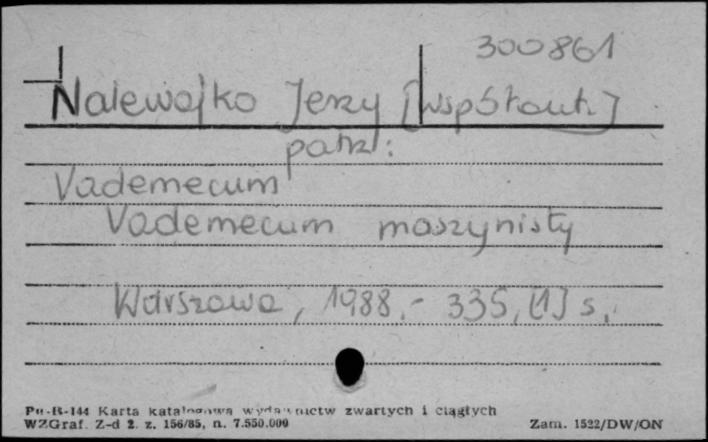 300861
Nalewajko Jerzy [współaut.]
patrz:
Vademecum
Vademecum maszynisty
Warszawa, 1988.- 335, [1] s.
Pu-B-144 Karta katalogowa wydawnictw zwartych i ciągłych
WZGraf. Z-d 2. z. 156/85, n. 7.550.000
Zam. 1522/DW/ON